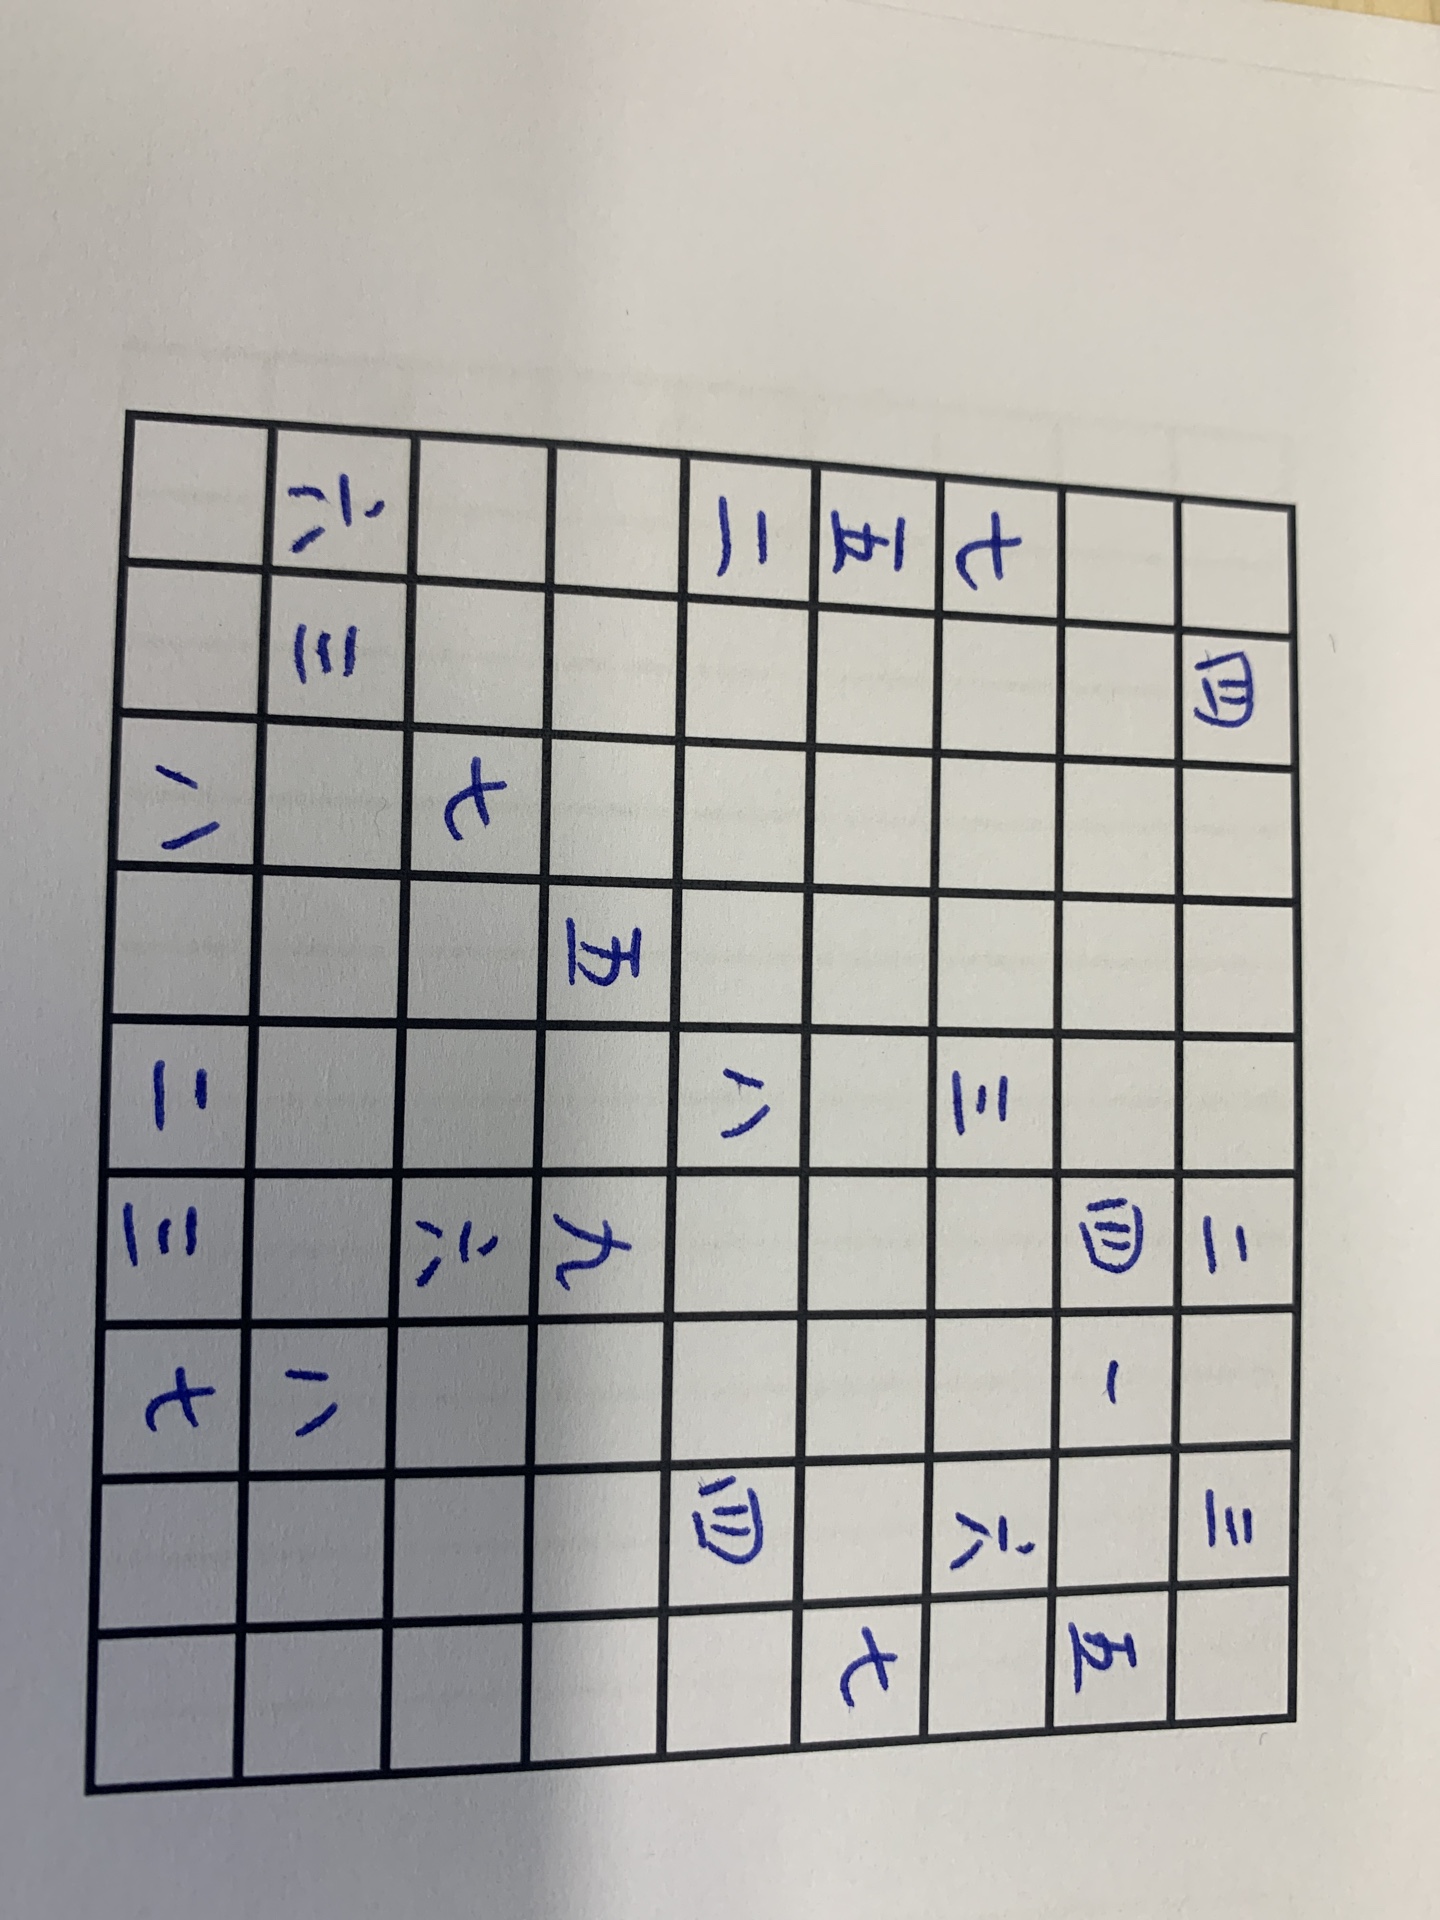 四 二 三
四 一 五
七 三 六
五 七
二 八 四
五 九
七 六
六 三 八
八 二 三 七